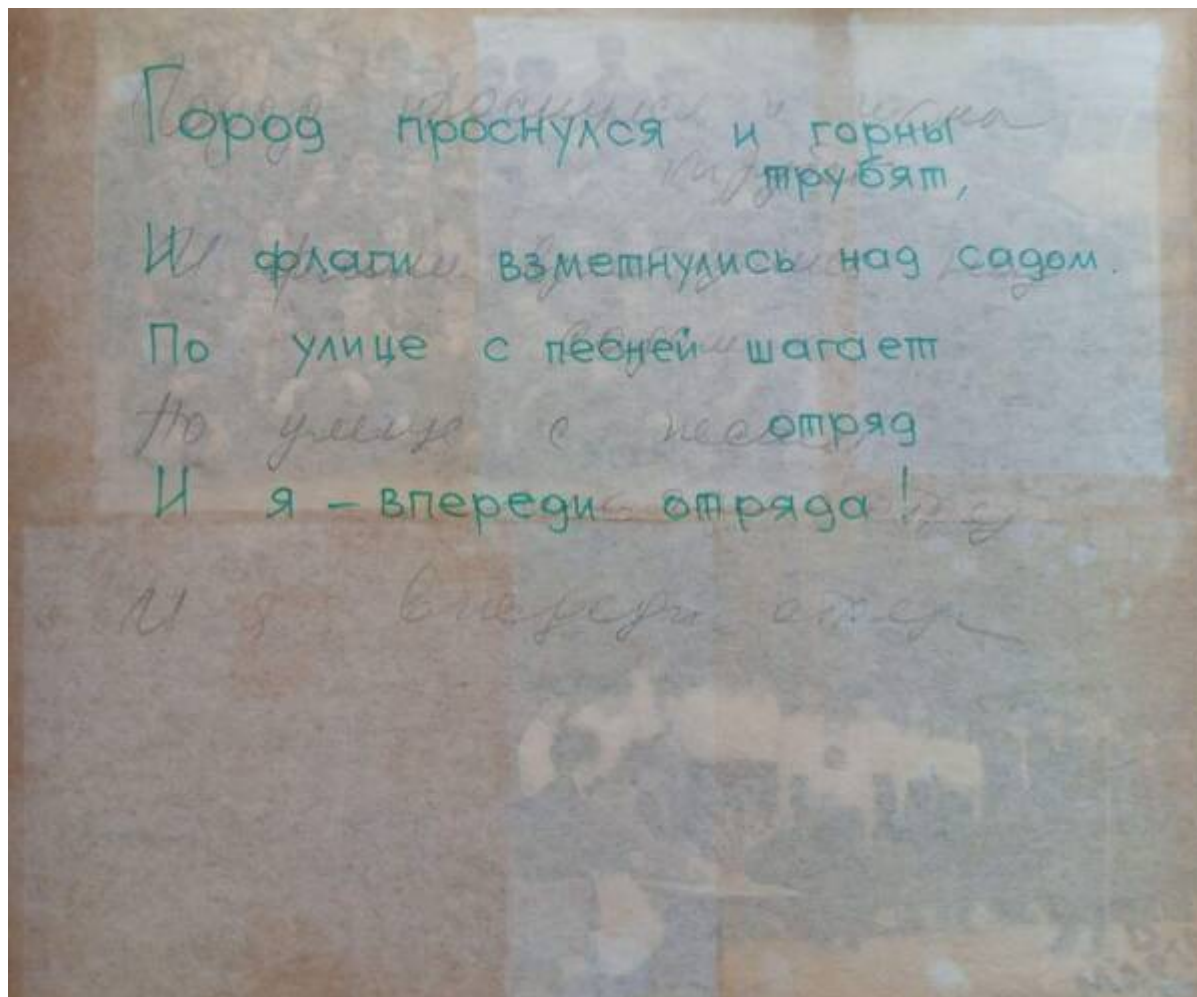 Город проснулся и горны
трубят,
И флаги взметнулись над садом.
По улице с песней шагает
отряд
По улице с
И я – впереди отряда!
И я впереди